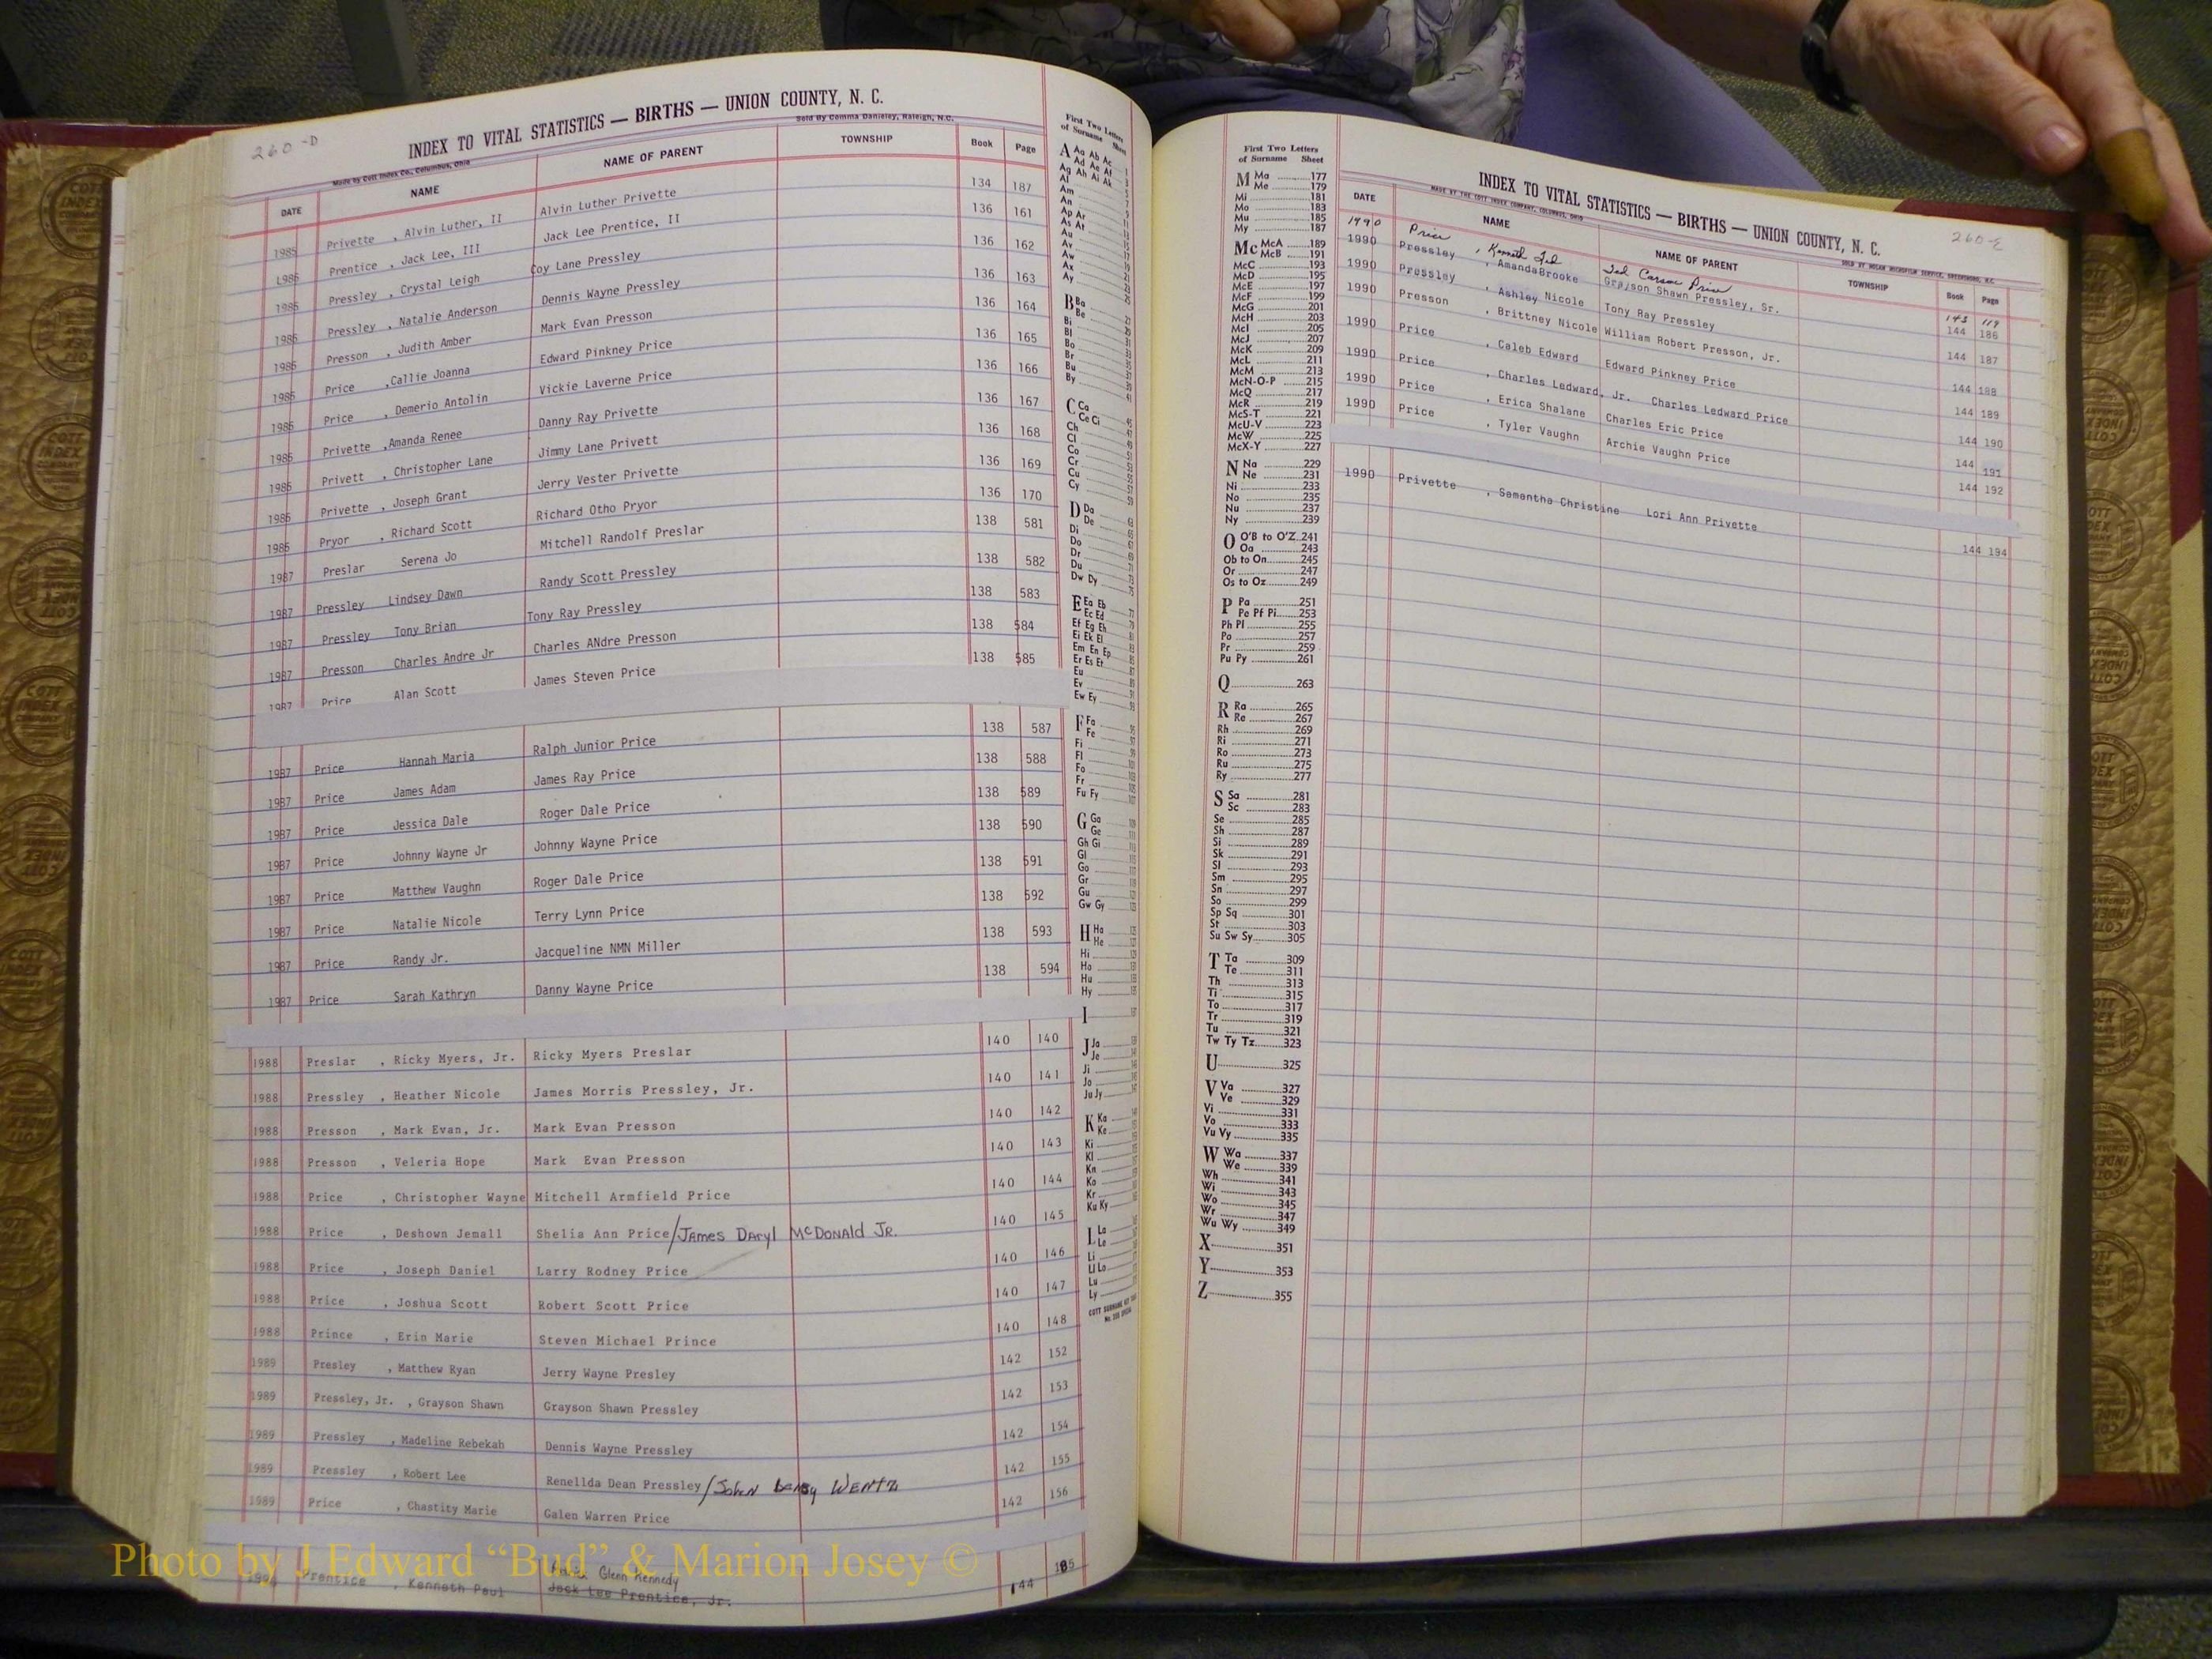 260-D
INDEX TO VITAL STATISTICS — BIRTHS — UNION COUNTY, N. C.
Made by Cott Index Co., Columbus, Ohio
Sold By Comma Danieley, Raleigh, N.C.
DATE NAME NAME OF PARENT TOWNSHIP Book Page
1985 Privette , Alvin Luther, II Alvin Luther Privette 134 187
1986 Prentice , Jack Lee, III Jack Lee Prentice, II 136 161
1986 Pressley , Crystal Leigh Coy Lane Pressley 136 162
1986 Pressley , Natalie Anderson Dennis Wayne Pressley 136 163
1986 Presson , Judith Amber Mark Evan Presson 136 164
1986 Price ,Callie Joanna Edward Pinkney Price 136 165
1986 Price , Demerio Antolin Vickie Laverne Price 136 166
1986 Privette ,Amanda Renee Danny Ray Privette 136 167
1986 Privett , Christopher Lane Jimmy Lane Privett 136 168
1986 Privette , Joseph Grant Jerry Vester Privette 136 169
1986 Pryor , Richard Scott Richard Otho Pryor 136 170
1987 Preslar Serena Jo Mitchell Randolf Preslar 138 581
1987 Pressley Lindsey Dawn Randy Scott Pressley 138 582
1987 Pressley Tony Brian Tony Ray Pressley 138 583
1987 Presson Charles Andre Jr Charles ANdre Presson 138 584
1987 Price Alan Scott James Steven Price 138 585
1987 Price Hannah Maria Ralph Junior Price 138 587
1987 Price James Adam James Ray Price 138 588
1987 Price Jessica Dale Roger Dale Price 138 589
1987 Price Johnny Wayne Jr Johnny Wayne Price 138 590
1987 Price Matthew Vaughn Roger Dale Price 138 591
1987 Price Natalie Nicole Terry Lynn Price 138 592
1987 Price Randy Jr. Jacqueline NMN Miller 138 593
1987 Price Sarah Kathryn Danny Wayne Price 138 594
1988 Preslar , Ricky Myers, Jr. Ricky Myers Preslar 140 140
1988 Pressley , Heather Nicole James Morris Pressley, Jr. 140 141
1988 Presson , Mark Evan, Jr. Mark Evan Presson 140 142
1988 Presson , Veleria Hope Mark Evan Presson 140 143
1988 Price , Christopher Wayne Mitchell Armfield Price 140 144
1988 Price , Deshown Jemall Shelia Ann Price/James Daryl McDonald Jr. 140 145
1988 Price , Joseph Daniel Larry Rodney Price 140 146
1988 Price , Joshua Scott Robert Scott Price 140 147
1988 Prince , Erin Marie Steven Michael Prince 140 148
1989 Presley , Matthew Ryan Jerry Wayne Presley 142 152
1989 Pressley, Jr. , Grayson Shawn Grayson Shawn Pressley 142 153
1989 Pressley , Madeline Rebekah Dennis Wayne Pressley 142 154
1989 Pressley , Robert Lee Renellda Dean Pressley/John Wentz 142 155
1989 Price , Chastity Marie Galen Warren Price 142 156
Glenn Kennedy
Prentice , Kenneth Paul Jack Lee Prentice, Jr. 144 185
Photo by J Edward “Bud” & Marion Josey ©
First Two Letters
of Surname Sheet
A Aa Ab Ac
Ad Ae Af
Ag Ah Ai Ak
Al
Am
An
Ap Ar
As At
Au
Av
Aw
Ax
Ay
B Ba
Be
Bi
Bl
Bo
Br
Bu
By
C Ca
Ce Ci
Ch
Cl
Co
Cr
Cu
Cy
D Da
De
Di
Do
Dr
Du
Dw Dy
E Ea Eb
Ec Ed
Ef Eg Eh
Ei Ek El
Em En Ep
Er Es Et
Eu
Ev
Ew Ey
F Fa
Fe
Fi
Fl
Fo
Fr
Fu Fy
G Ga
Ge
Gh Gi
Gl
Go
Gr
Gu
Gw Gy
H Ha
He
Hi
Ho
Hu
Hy
I
J Ja
Je
Ji
Jo
Ju Jy
K Ka
Ke
Ki
Kl
Kn
Ko
Kr
Ku Ky
L La
Le
Li
Ll Lo
Lu
Ly
First Two Letters
of Surname Sheet
M Ma 177
Me 179
Mi 181
Mo 183
Mu 185
My 187
Mc McA 189
McB 191
McC 193
McD 195
McE 197
McF 199
McG 201
McH 203
McI 205
McJ 207
McK 209
McL 211
McM 213
McN-O-P 215
McQ 217
McR 219
McS-T 221
McU-V 223
McW 225
McX-Y 227
N Na 229
Ne 231
Ni 233
No 235
Nu 237
Ny 239
O O'B to O'Z 241
Oa 243
Ob to On 245
Or 247
Os to Oz 249
P Pa 251
Pe Pf Pi 253
Ph Pl 255
Po 257
Pr 259
Pu Py 261
Q 263
R Ra 265
Re 267
Rh 269
Ri 271
Ro 273
Ru 275
Ry 277
S Sa 281
Sc 283
Se 285
Sh 287
Si 289
Sk 291
Sl 293
Sm 295
Sn 297
So 299
Sp Sq 301
St 303
Su Sw Sy 305
T Ta 309
Te 311
Th 313
Ti 315
To 317
Tr 319
Tu 321
Tw Ty Tz 323
U 325
V Va 327
Ve 329
Vi 331
Vo 333
Vu Vy 335
W Wa 337
We 339
Wh 341
Wi 343
Wo 345
Wr 347
Wu Wy 349
X 351
Y 353
Z 355
260-E
INDEX TO VITAL STATISTICS — BIRTHS — UNION COUNTY, N. C.
MADE BY THE COTT INDEX COMPANY, COLUMBUS, OHIO
DATE NAME NAME OF PARENT TOWNSHIP Book Page
1990 Price , Kenneth Ted Ted Carson Price 143 119
1990 Pressley , AmandaBrooke Grayson Shawn Pressley, Sr. 144 186
1990 Pressley , Ashley Nicole Tony Ray Pressley 144 187
1990 Presson , Brittney Nicole William Robert Presson, Jr. 144 188
1990 Price , Caleb Edward Edward Pinkney Price 144 189
1990 Price , Charles Ledward, Jr. Charles Ledward Price 144 190
1990 Price , Erica Shalane Charles Eric Price 144 191
1990 Price , Tyler Vaughn Archie Vaughn Price 144 192
1990 Privette , Samantha Christine Lori Ann Privette 144 194